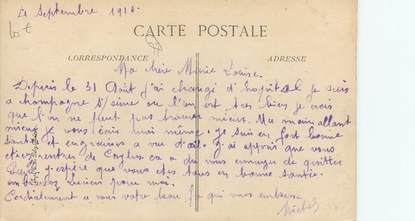 21 Septembre 1916
Lot
CARTE POSTALE
CORRESPONDANCE
ADRESSE
Ma chère Marie Louise.
Depuis le 31 Août j'ai changé d'hôpital je suis
a champagne s/seine ou l'on est très bien je crois
que l'on ne peut pas trouver mieux. Ma main allant
mieux je vous écris moi même. je suis en fort bonne
santé et engraisse a vue d'œil. j'ai appris que vous
etiez rentrée de Caylus ca a du vous ennuyer de quitter
j'espère que vous etes tous en bonne santé.
pour moi.
Cordialement a vous votre qui vous embrasse